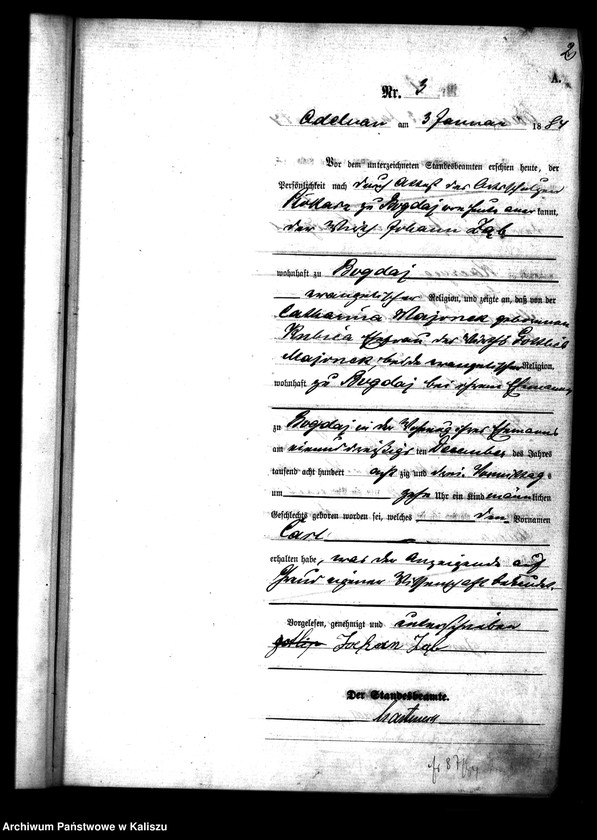 2
A.
Nr. 3
Adelnau am 3 Januar 1884
Vor dem unterzeichneten Standesbeamten erschien heute, der
Persönlichkeit nach durch Attest des Ortsschulzen
zu Bogdaj von heute anerkannt,
der Wirth Johann Ząb
wohnhaft zu Bogdaj
evangelischer Religion, und zeigte an, daß von der
Catharina Majorek geborenen
Kubica Ehefrau des Wirths Gottlieb
Majorek, beide evangelischer Religion,
wohnhaft zu Bogdaj bei ihrem Ehemann
zu Bogdaj in der Wohnung ihres Ehemanns
am einunddreißigsten December des Jahres
tausend acht hundert achtzig und drei Vormittags
um zehn Uhr ein Kind männlichen
Geschlechts geboren worden sei, welches den Vornamen
Carl
erhalten habe, was der Anzeigende auf
Grund eigener Wissenschaft bekundet.
Vorgelesen, genehmigt und unterschrieben
Johan Ząb
Der Standesbeamte.
Archiwum Państwowe w Kaliszu